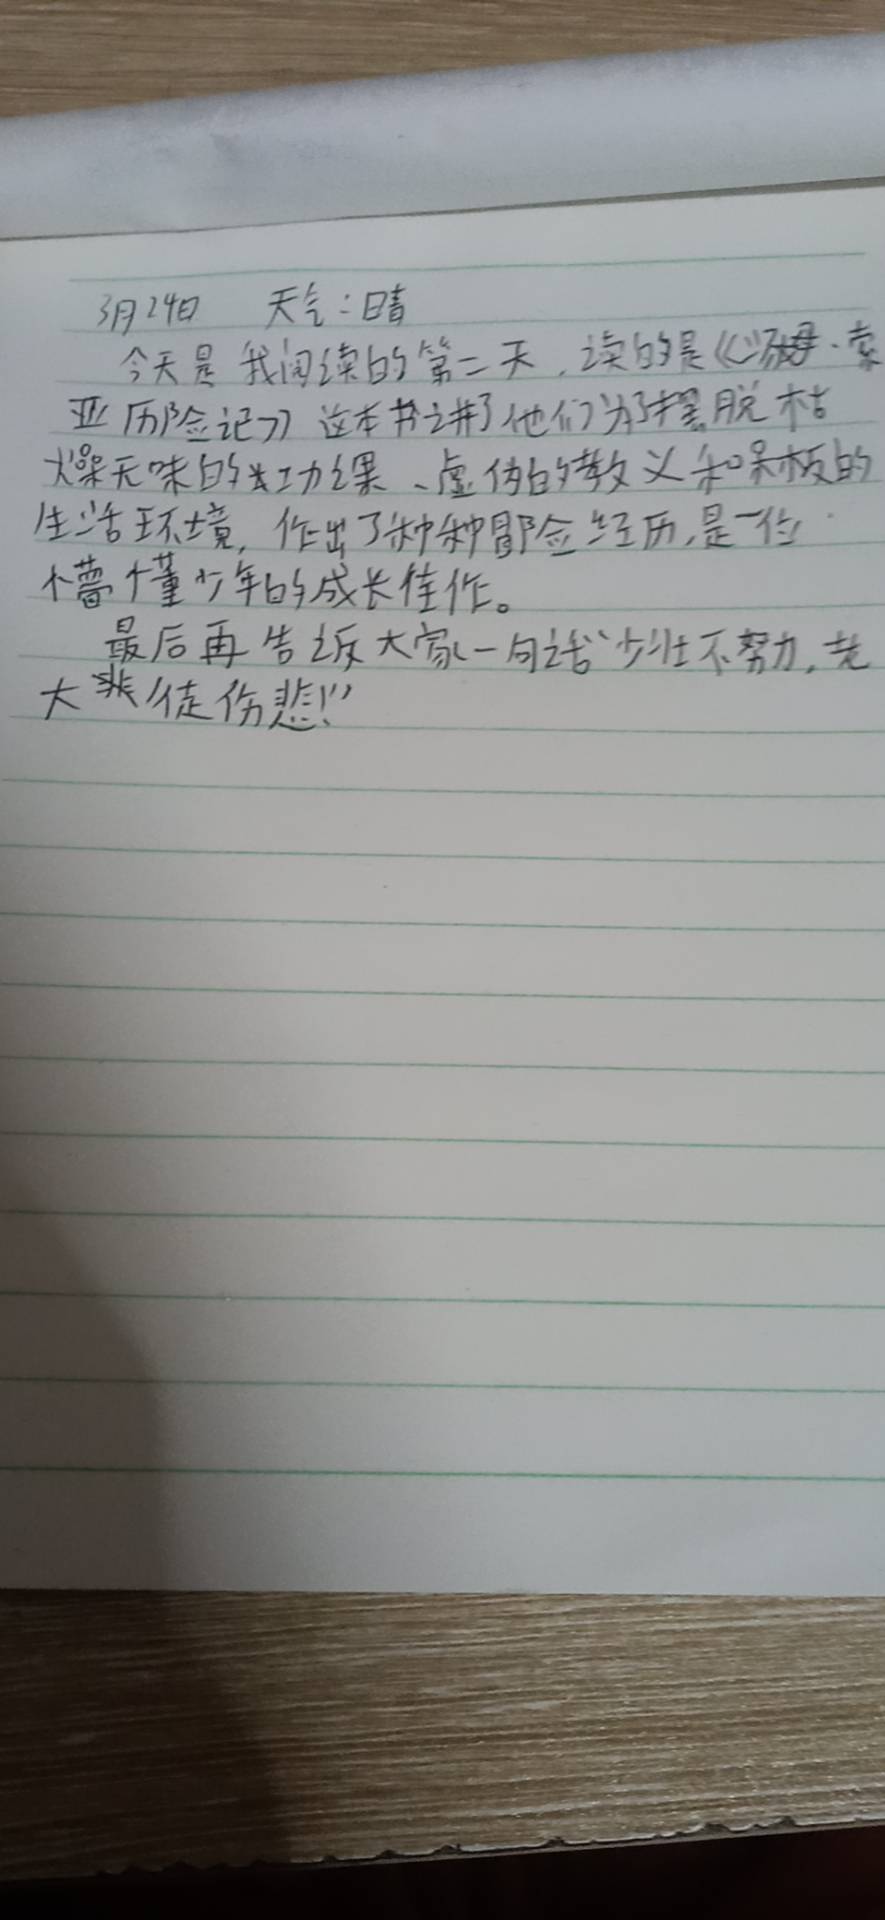 3月24日 天气:晴
今天是我阅读的第二天,读的是《汤姆·索
亚历险记》这本书讲了他们为了摆脱枯
燥无味的功课、虚伪的教义和呆板的
生活环境,作出了种种冒险经历,是一位
懵懂少年的成长佳作。
最后再告诉大家一句话“少壮不努力,老
大徒伤悲!”